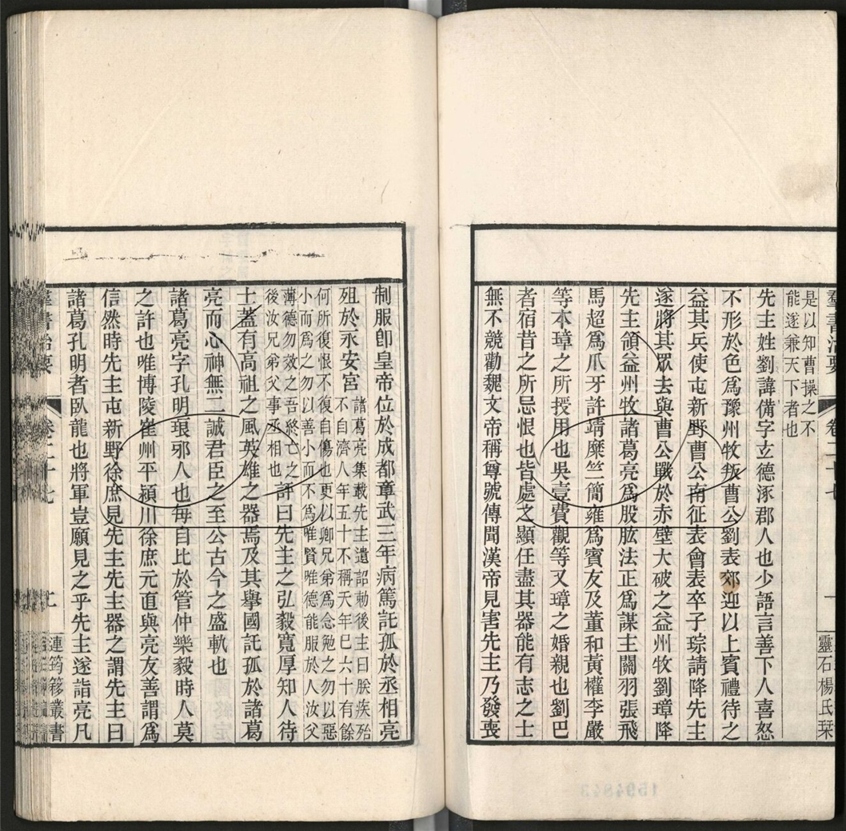 羣書治要
卷二十七
一
靈石楊氏栞
是以知曹操之不
能遂兼天下者也
先主姓劉諱備字玄德涿郡人也少語言善下人喜怒
不形於色爲豫州牧叛曹公劉表郊迎以上賓禮待之
益其兵使屯新野曹公南征表會表卒子琮請降先主
遂將其眾去與曹公戰於赤壁大破之益州牧劉璋降
先主領益州牧諸葛亮爲股肱法正爲謀主關羽張飛
馬超爲爪牙許靖糜竺簡雍爲賓友及董和黃權李嚴
等本璋之所授用也吳壹費觀等又璋之婚親也劉巴
者宿昔之所忌恨也皆處之顯任盡其器能有志之士
無不競勸魏文帝稱尊號傳聞漢帝見害先主乃發喪
制服卽皇帝位於成都章武三年病篤託孤於丞相亮
殂於永安宮
諸葛亮集載先主遺詔勑後主曰朕疾殆
不自濟人年五十不稱夭年巳六十有餘
何所復恨不復自傷也更以卿兄弟爲念勉之勿以惡
小而爲之勿以善小而不爲唯賢唯德能服於人汝父
薄德勿效之吾終亡之
後汝兄弟父事丞相也
評曰先主之弘毅寬厚知人待
士蓋有高祖之風英雄之器焉及其舉國託孤於諸葛
亮而心神無二誠君臣之至公古今之盛軌也
諸葛亮字孔明琅邪人也每自比於管仲樂毅時人莫
之許也唯博陵崔州平潁川徐庶元直與亮友善謂爲
信然時先主屯新野徐庶見先主先主器之謂先主曰
諸葛孔明者臥龍也將軍豈願見之乎先主遂詣亮凡
羣書治要
卷二十七
連筠簃叢書
1594843